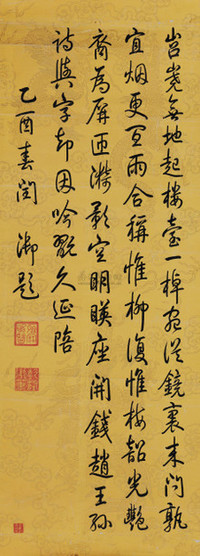 岧嶤無地起樓臺一棹宛從鏡裏來問孰
宜烟更宜雨合稱惟柳復惟梅韶光艷
裔為屏匝漪影空明暎座開錢趙王孫
詩與字却因吟翫久延陪
乙酉春閏 御題